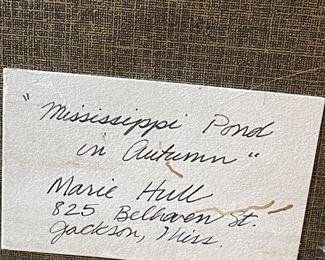 "Mississippi Pond
in Autumn"
Marie Hull
825 Belhaven St.
Jackson, Miss.